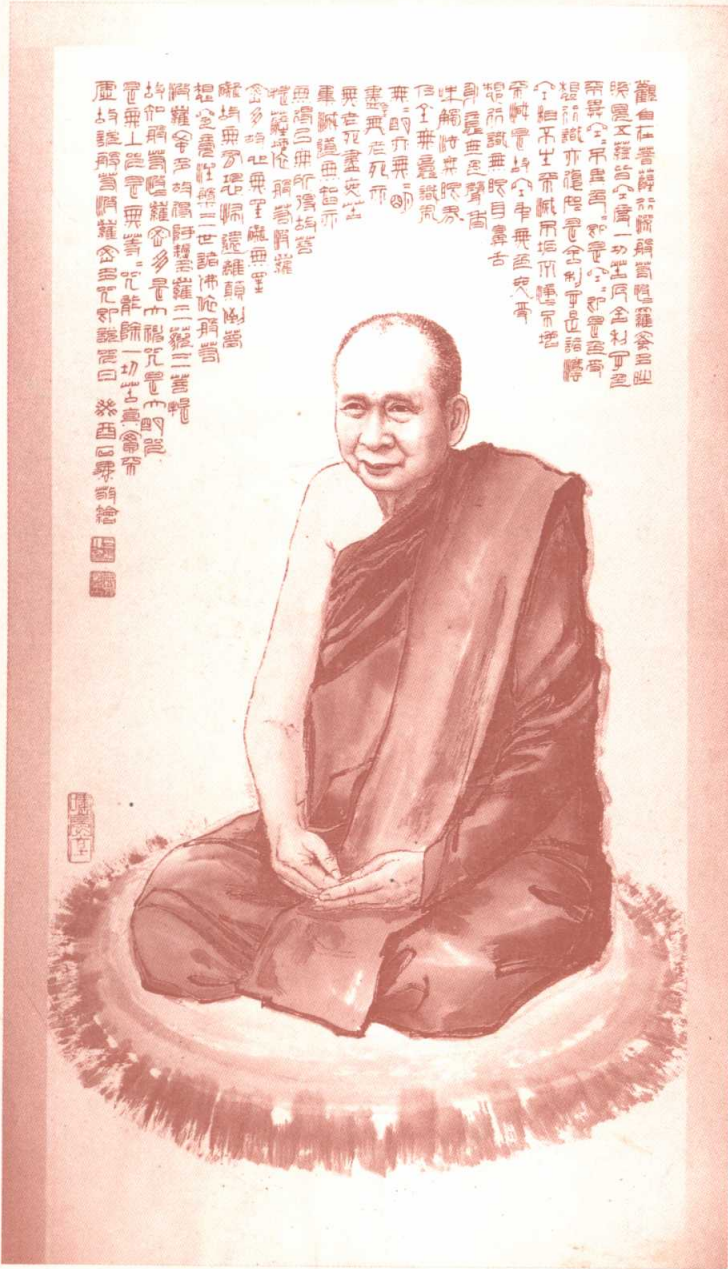 觀自在菩薩行深般若波羅蜜多時
照見五蘊皆空度一切苦厄舍利子色
不異空〻不異色〻即是空〻即是色受
想行識亦復如是舍利子是諸法
空相不生不滅不垢不淨不增
不減是故空中無色無受
想行識無眼耳鼻舌
身意無色聲香
味觸法無眼界
乃至無意識界
無〻明亦無〻明
盡無老死亦
無老死盡無苦
集滅道無智亦
無得以無所得故菩
提薩埵依般若波羅
蜜多故心無罣礙無罣
礙故無有恐怖遠離顛倒夢
想究竟涅槃三世諸佛依般若
波羅蜜多故得阿耨多羅三藐三菩提
故知般若波羅蜜多是大神咒是大明咒
是無上咒是無等〻咒能除一切苦真實不
虛故說般若波羅蜜多咒即說咒曰 癸酉敬繪